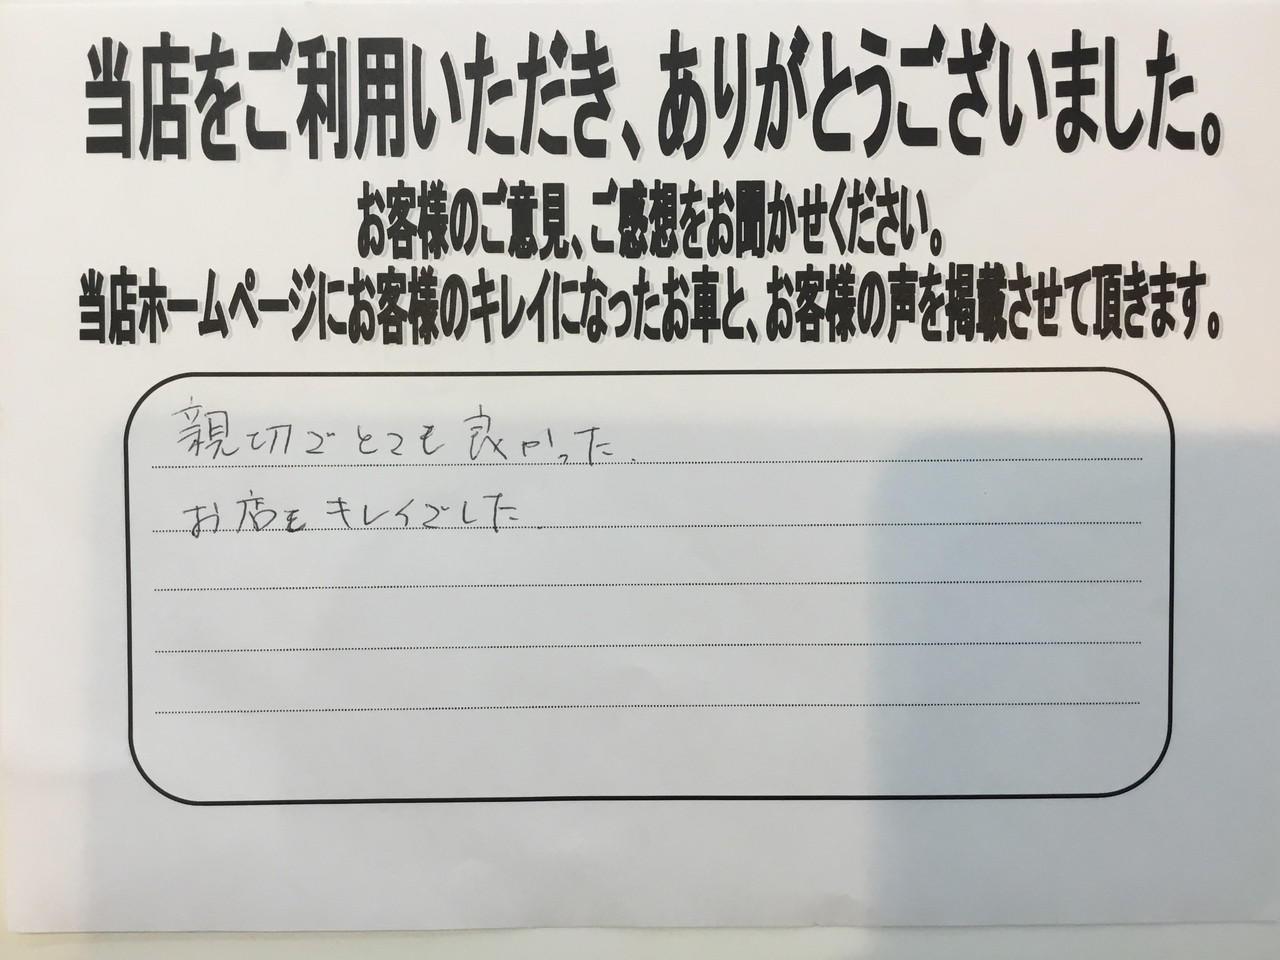 当店をご利用いただき、ありがとうございました。
お客様のご意見、ご感想をお聞かせください。
当店ホームページにお客様のキレイになったお車と、お客様の声を掲載させて頂きます。
親切でとても良かった.
お店もキレイでした.